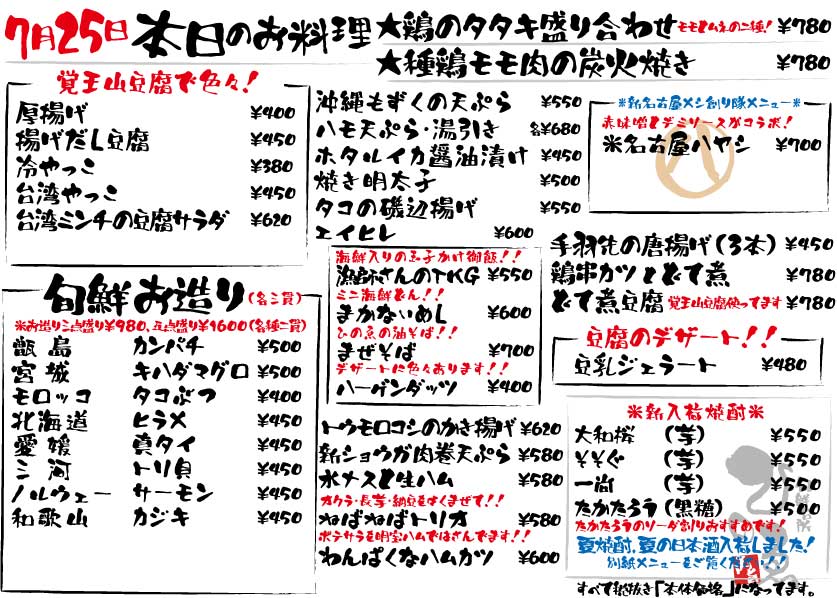 7月25日 本日のお料理
★鶏のタタキ盛り合わせ モモとムネの二種! ¥780
★種鶏モモ肉の炭火焼き ¥780
覚王山豆腐で色々!
厚揚げ ¥400
揚げだし豆腐 ¥450
冷やっこ ¥380
台湾やっこ ¥450
台湾ミンチの豆腐サラダ ¥620
旬鮮お造り(各三貫)
※お造り三点盛り¥980、五点盛り¥1600(各種二貫)
甑島 カンパチ ¥500
宮城 キハダマグロ ¥500
モロッコ タコぶつ ¥400
北海道 ヒラメ ¥450
愛媛 真タイ ¥450
三河 トリ貝 ¥450
ノルウェー サーモン ¥450
和歌山 カジキ ¥450
沖縄もずくの天ぷら ¥550
ハモ天ぷら・湯引き 各¥680
ホタルイカ醤油漬け ¥450
焼き明太子 ¥500
タコの磯辺揚げ ¥550
エイヒレ ¥600
海鮮入りの玉子かけ御飯!!
漁師さんのTKG ¥550
ミニ海鮮どん!!
まかないめし ¥600
ひの魚の油そば!!
まぜそば ¥700
デザートに色々あります!!
ハーゲンダッツ ¥400
トウモロコシのかき揚げ ¥620
新ショウガ肉巻天ぷら ¥580
水ナスと生ハム ¥580
オクラ・長芋・納豆をよくまぜて!!
ねばねばトリオ ¥580
ポテサラを明宝ハムではさんでます!!
わんぱくなハムカツ ¥600
※新名古屋メシ創り隊メニュー※
赤味噌とデミソースがコラボ!
※名古屋ハヤシ ¥700
手羽先の唐揚げ(3本) ¥450
鶏串カツとどて煮 ¥780
どて煮豆腐 覚王山豆腐使ってます ¥780
豆腐のデザート!!
豆乳ジェラート ¥480
※新入荷焼酎※
大和桜 (芋) ¥550
そそぐ (芋) ¥550
一尚 (芋) ¥550
たかたろう (黒糖) ¥550
たかたろうのソーダ割りおすすめです!
夏焼酎、夏の日本酒入荷しました!
別紙メニューをご覧ください!!
すべて税抜き「本体価格」になってます。